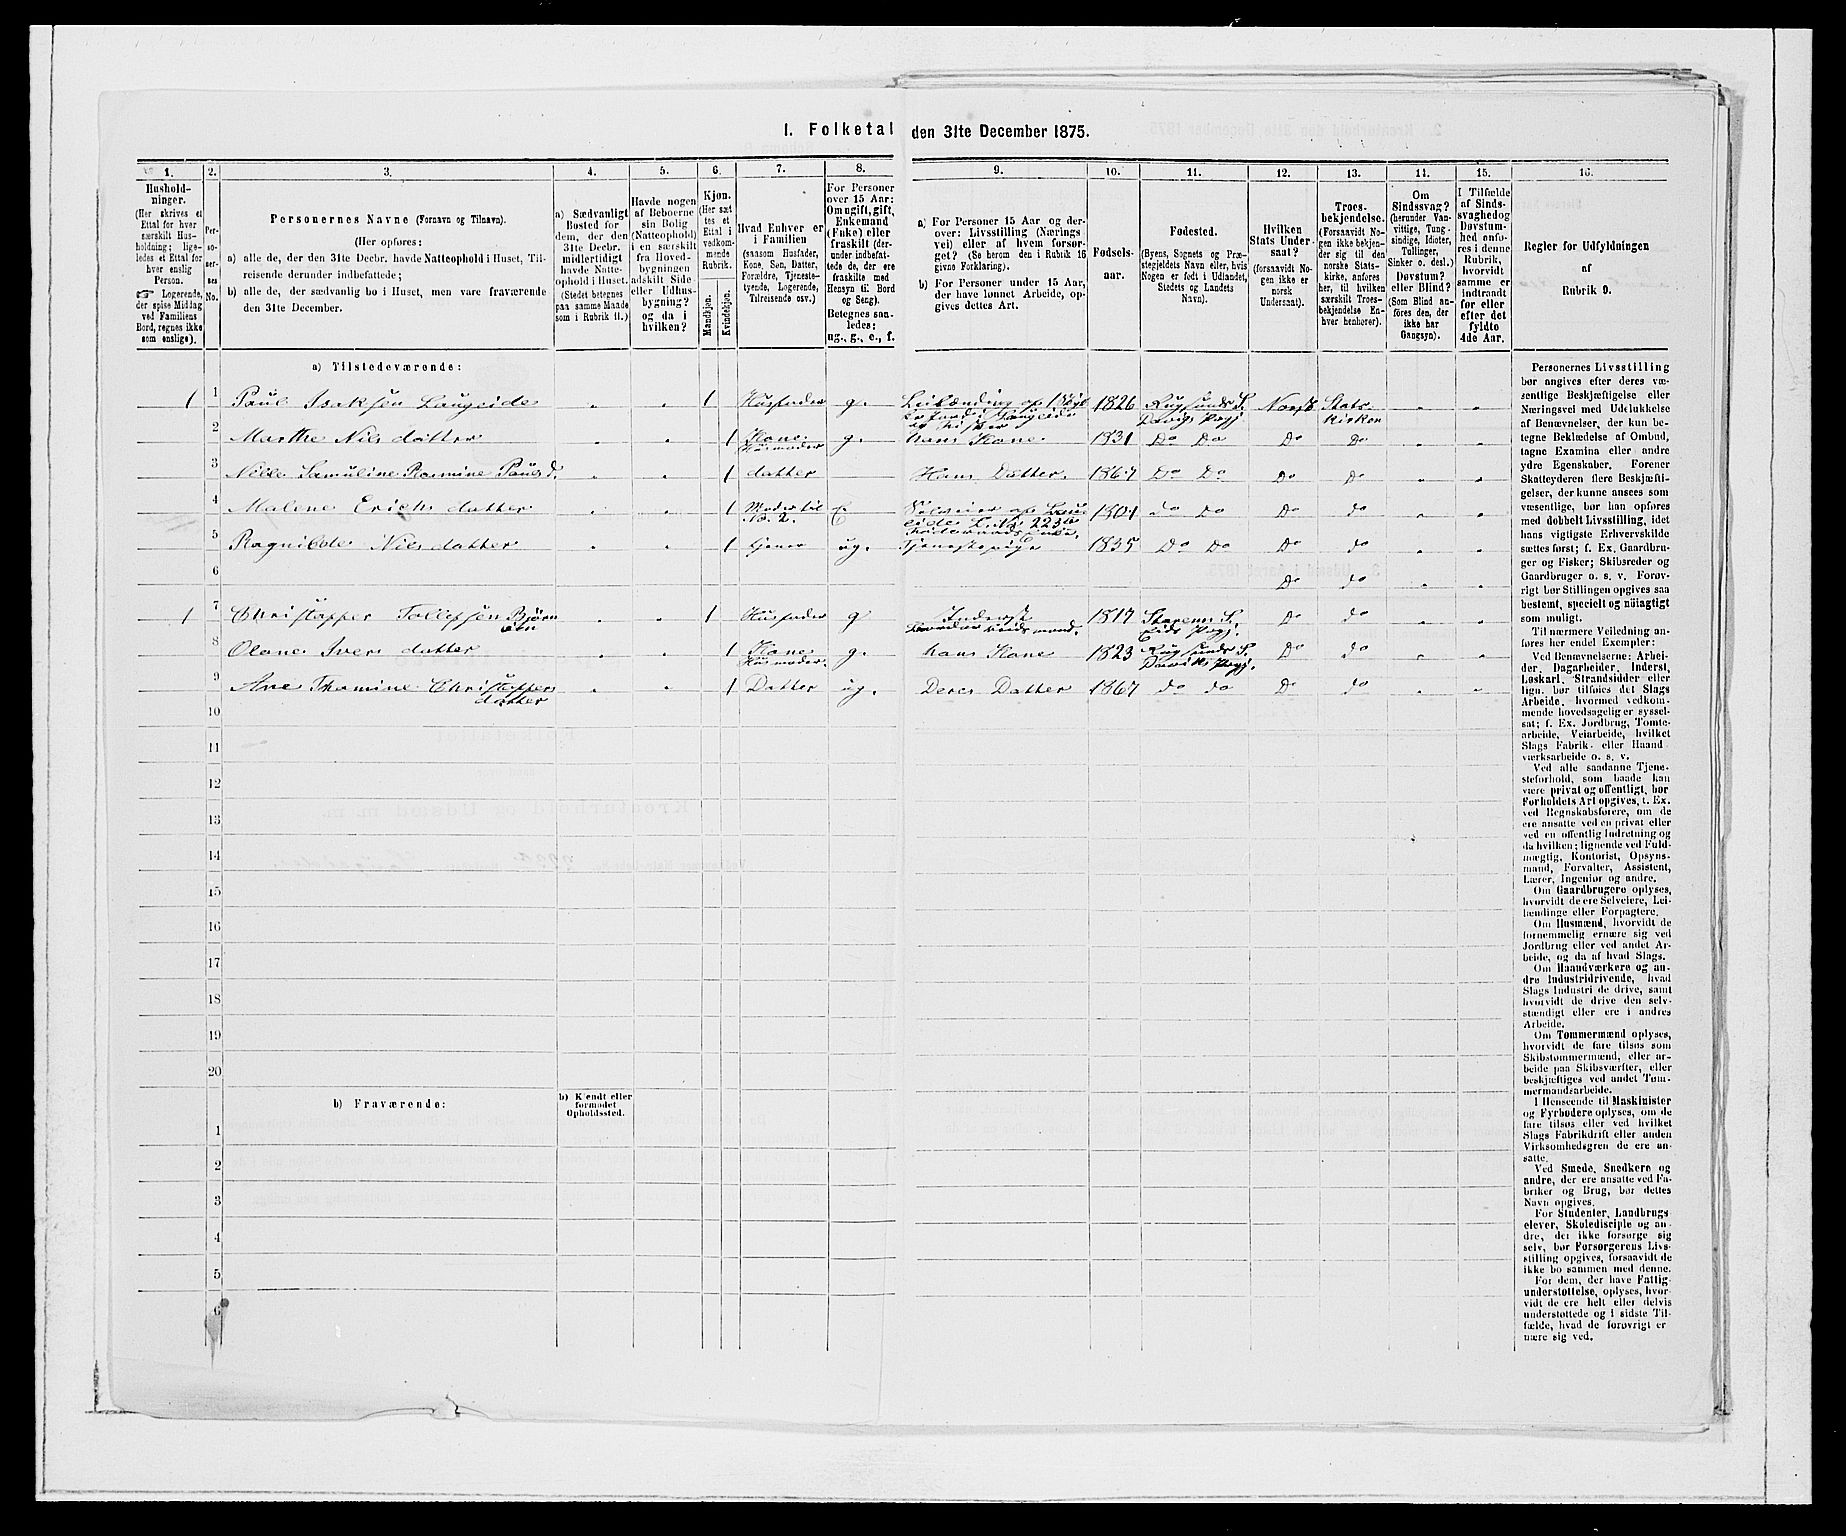 I. Folketal den 31te December 1875.
1. 2. 3. 4. 5. 6. 7. 8. 9. 10. 11. 12. 13. 14. 15. 16.
Hushold-
ninger.
(Her skrives et
Ettal for hver
særskilt Hus-
holdning; lige-
ledes et Ettal for
hver enslig
Person.
☞ Logerende,
der spise Middag
ved Familiens
Bord, regnes ikke
som enslige).
Per-
so-
ner-
nes
No.
Personernes Navne (Fornavn og Tilnavn).
(Her opføres:
a) alle de, der den 31te Decbr. havde Natteophold i Huset, Til-
reisende derunder indbefattede;
b) alle de, der sædvanlig bo i Huset, men vare fraværende
den 31te December.
a) Sædvanligt
Bosted for
dem, der den
31te Decbr.
midlertidigt
havde Natte-
ophold i Huset.
(Stedet betegnes
paa samme Maade
som i Rubrik 11.)
Havde nogen
af Beboerne
sin Bolig
(Natteophold)
i en særskilt
fra Hoved-
bygningen
adskilt Side-
eller Udhus-
bygning?
og da i
hvilken?
Kjøn.
(Her sæt-
tes et
Ettal i
vedkom-
mende
Rubrik.
Mandkjøn.
Kvindekjøn.
Hvad Enhver er
i Familien
(saasom Husfader,
Kone, Søn, Datter,
Forældre, Tjeneste-
tyende, Logerende,
Tilreisende osv.)
For Personer
over 15 Aar:
Om ugift, gift,
Enkemand
(Enke) eller
fraskilt (der-
under indbefat-
tede de, der
ere fraskilte med
Hensyn til Bord
og Seng).
Betegnes saa-
ledes:
ug., g., e., f.
a) For Personer 15 Aar og der-
over: Livsstilling (Nærings-
vei) eller af hvem forsør-
get? (Se herom den i Rubrik 16
givne Forklaring).
b) For Personer under 15 Aar,
der have lønnet Arbeide, op-
gives dettes Art.
Fødsels-
aar.
Fødested.
(Byens, Sognets og Præ-
stegjeldets Navn eller, hvis
Nogen er født i Udlandet,
Stedets og Landets
Navn).
Hvilken
Stats Under-
saat?
(forsaavidt No-
gen ikke er
norsk
Undersaat).
Troes-
bekjendelse.
(Forsaavidt No-
gen ikke bekjen-
der sig til den
norske Stats-
kirke, anføres
her, til hvilken
særskilt Troes-
bekjendelse En-
hver henhører).
Om
Sindssvag?
(herunder Van-
vittige, Tung-
sindige, Idioter,
Tullinger,
Sinker o. desl.)
Døvstum?
eller Blind?
(Som Blind an-
føres den, der
ikke har
Gangsyn).
I Tilfælde
af Sinds-
svaghed og
Døvstum-
hed anfø-
res i denne
Rubrik,
hvorvidt
samme er
indtraadt
før eller
efter det
fyldte
4de Aar.
Regler for Udfyldningen
af
Rubrik 9.
a) Tilstedeværende:
1 1 Paul Isaksen Laugeide „ „ 1 Husfader g. 1826 Rugsunds S. Norsk Stats- „ „
kirken
2 Marthe Nilsdatter „ „ 1 Kone g. hans Kone 1831 Do Do Do Do „ „
Husmoder
3 Nille Samuline Rasmine Paulsd. „ „ 1 datter Hans Datter 1867 Do Do Do Do „ „
4 Malene Erichsdatter „ „ 1 Moder til E 1801 do Do Do do „ „
No. 2.
5 Ragnilde Nilsdatter „ „ 1 tjener ug. Tjenestepige 1835 Do Do Do do „ „
6 Do do „ „
1 7 Christopper Tollefsen Bjørn „ „ 1 Husfader g Inderst 1817 Starems S. Do do „ „
Eids Prgj.
8 Olane Iversdatter „ „ 1 Kone g. hans Kone 1823 Rugsunds S. Do do „ „
Husmoder. Daviks Prgj.
9 Ane Thomine Christopper „ „ 1 Datter ug. Deres Datter 1867 do do Do do „ „
datter
10
11
12
13
14
15
16
17
18
19
20
b) Fraværende:
b) Kjendt eller
formodet
Opholdssted.
1
2
3
4
5
6
Personernes Livsstilling
bør angives efter deres væ-
sentlige Beskjæftigelse eller
Næringsvei med Udelukkelse
af Benævnelser, der kun be-
tegne Beklædelse af Ombud,
tagne Examina eller andre
ydre Egenskaber. Forener
Skatteyderen flere Beskjæfti-
gelser, der kunne ansees som
væsentlige, bør han opføres
med dobbelt Livsstilling, idet
hans vigtigste Erhvervskilde
sættes først; f. Ex. Gaardbru-
ger og Fisker; Skibsreder og
Gaardbruger o. s. v. Forøv-
rigt bør Stillingen opgives saa
bestemt, specielt og nøiagtigt
som muligt.
Til nærmere Veiledning an-
føres her endel Exempler:
Ved Benævnelserne: Arbei-
der, Dagarbeider, Inderst,
Løskarl, Strandsidder eller
lign. bør tilføies det Slags
Arbeide, hvormed vedkom-
mende hovedsagelig er syssel-
sat; f. Ex. Jordbrug, Tomte-
arbeide, Veiarbeide, hvilket
Slags Fabrik- eller Haand-
værksarbeide o. s. v.
Ved alle saadanne Tjene-
steforhold, som baade kan
være privat og offentligt, bør
Forholdets Art opgives, t. Ex.
ved Regnskabsførere, om de
ere ansatte ved en privat eller
ved en offentlig Indretning og
da hvilken; lignende ved Fuld-
mægtig, Kontorist, Opsyns-
mand, Forvalter, Assistent,
Lærer, Ingeniør og andre.
Om Gaardbrugere oplyses,
hvorvidt de ere Selveiere, Lei-
lændinge eller Forpagtere.
Om Husmænd, hvorvidt de
fornemmelig ernære sig ved
Jordbrug eller ved andet Ar-
beide, og da af hvad Slags.
Om Haandværkere og an-
dre Industridrivende, hvad
Slags Industri de drive, samt
hvorvidt de drive den selv-
stændigt eller ere i andres
Arbeide.
Om Tømmermænd oplyses,
hvorvidt de fare tilsøs som
Skibstømmermænd, eller ar-
beide paa Skibsværfter, eller
beskjæftiges ved andet Tøm-
mermandsarbeide.
I Henseende til Maskinister
og Fyrbødere oplyses, om de
fare tilsøs eller ved hvilket
Slags Fabrikdrift eller anden
Virksomhedsgren de ere an-
satte.
Ved Smede, Snedkere og
andre, der ere ansatte ved Fa-
briker og Brug, bør dettes
Navn opgives.
For Studenter, Landbrugs-
elever, Skoledisciple og an-
dre, der ikke forsørge sig
selv, bør Forsørgerens Livs-
stilling opgives, forsaavidt de
ikke bo sammen med denne.
For dem, der have Fattig-
understøttelse, oplyses, hvor-
vidt de ere helt eller delvis
understøttede og i sidste Til-
fælde, hvad de forøvrigt er-
nære sig ved.